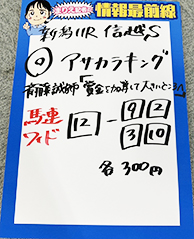 情報最前線
新潟11R 信越S
◎ アサカラキング
「斎藤誠師 賞金を加算して大きいところへ」
馬連 12 - 9 2
ワイド 3 10
各300円